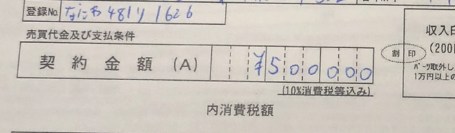 登録No. なにわ 481り 1626
売買代金及び支払条件
契約金額(A) ¥5000000
(10%消費税等込み)
内消費税額
収入印
(200
割印
1万円以上の